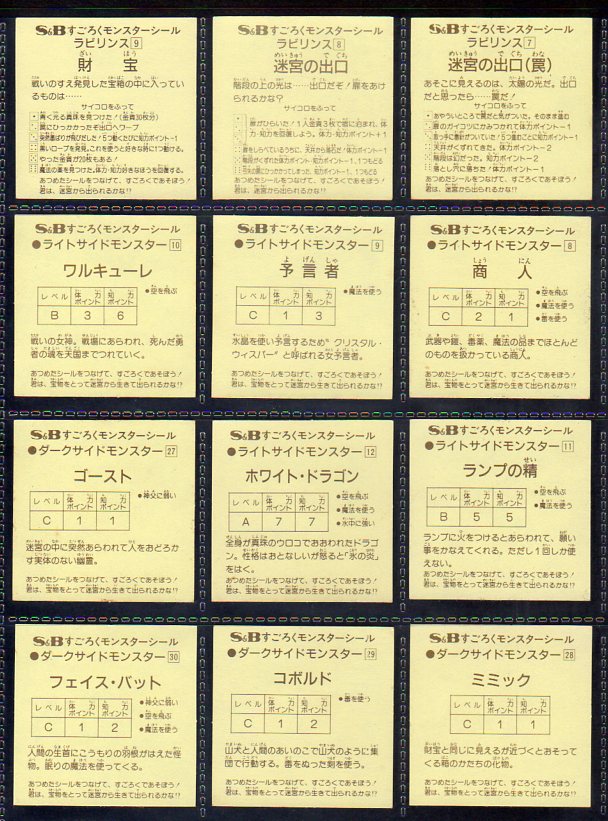 S&Bすごろくモンスターシール
ラビリンス 9
財宝
戦いのすえ発見した宝箱の中に入って
いるものは……
サイコロをふって
青く光る真珠を見つけた!(金貨30枚分)
罠にひっかかったぞ出口へワープ
やった金貨が20枚もある!
あつめたシールをつなげて、すごろくであそぼう!
君は、迷宮から出られるかな!?
S&Bすごろくモンスターシール
ラビリンス 8
迷宮の出口
階段の上の光は……出口だぞ!扉をあけ
られるかな?
サイコロをふって
あつめたシールをつなげて、すごろくであそぼう!
君は、迷宮から出られるかな!?
S&Bすごろくモンスターシール
ラビリンス 7
迷宮の出口(罠)
あそこに見えるのは、太陽の光だ。出口
だと思ったら……罠だ!
サイコロをふって
あやういところで罠だと気がついた。そのまま進め
罠のガイコツにかみつかれて体力ポイントー1
天井がくずれてきた。体力ポイントー2
階段は幻だった。知力ポイントー2
落とし穴に落ちた!体力ポイントー1
あつめたシールをつなげて、すごろくであそぼう!
君は、迷宮から出られるかな!?
S&Bすごろくモンスターシール
●ライトサイドモンスター 10
ワルキューレ
レベル 体力ポイント 知力ポイント
B 3 6
●空を飛ぶ
戦いの女神。戦場にあらわれ、死んだ勇
者の魂を天国までつれていく。
あつめたシールをつなげて、すごろくであそぼう!
君は、宝物をとって迷宮から生きて出られるかな!?
S&Bすごろくモンスターシール
●ライトサイドモンスター 9
予言者
レベル 体力ポイント 知力ポイント
C 1 3
●魔法を使う
水晶を使い予言するため〝クリスタル・
ウィスパー〟と呼ばれる女予言者。
あつめたシールをつなげて、すごろくであそぼう!
君は、宝物をとって迷宮から生きて出られるかな!?
S&Bすごろくモンスターシール
●ライトサイドモンスター 8
商人
レベル 体力ポイント 知力ポイント
C 2 1
●空を飛ぶ
●魔法を使う
●毒を使う
武器や鎧、毒薬、魔法の品までほとんど
のものを扱かっている商人。
あつめたシールをつなげて、すごろくであそぼう!
君は、宝物をとって迷宮から生きて出られるかな!?
S&Bすごろくモンスターシール
●ダークサイドモンスター 27
ゴースト
レベル 体力ポイント 知力ポイント
C 1 1
●神父に弱い
迷宮の中に突然あらわれて人をおどろか
す実体のない幽霊。
あつめたシールをつなげて、すごろくであそぼう!
君は、宝物をとって迷宮から生きて出られるかな!?
S&Bすごろくモンスターシール
●ライトサイドモンスター 12
ホワイト・ドラゴン
レベル 体力ポイント 知力ポイント
A 7 7
●空を飛ぶ
●魔法を使う
●水中に強い
全身が真珠のウロコでおおわれたドラゴ
ン。性格はおとなしいが怒ると「氷の炎」
をはく。
あつめたシールをつなげて、すごろくであそぼう!
君は、宝物をとって迷宮から生きて出られるかな!?
S&Bすごろくモンスターシール
●ライトサイドモンスター 11
ランプの精
レベル 体力ポイント 知力ポイント
B 5 5
●空を飛ぶ
●魔法を使う
ランプに火をつけるとあらわれて、願い
事をかなえてくれる。ただし1回しか使
えない。
あつめたシールをつなげて、すごろくであそぼう!
君は、宝物をとって迷宮から生きて出られるかな!?
S&Bすごろくモンスターシール
●ダークサイドモンスター 30
フェイス・バット
レベル 体力ポイント 知力ポイント
C 1 2
●神父に弱い
●空を飛ぶ
●魔法を使う
人間の生首にこうもりの羽根がはえた怪
物。眠りの魔法を使ってくる。
あつめたシールをつなげて、すごろくであそぼう!
君は、宝物をとって迷宮から生きて出られるかな!?
S&Bすごろくモンスターシール
●ダークサイドモンスター 29
コボルド
レベル 体力ポイント 知力ポイント
C 1 2
●毒を使う
山犬と人間のあいのこで山犬のように集
団で行動する。毒をぬった剣を使う。
あつめたシールをつなげて、すごろくであそぼう!
君は、宝物をとって迷宮から生きて出られるかな!?
S&Bすごろくモンスターシール
●ダークサイドモンスター 28
ミミック
レベル 体力ポイント 知力ポイント
C 1 1
財宝と同じに見えるが近づくとおそって
くる箱のかたちの化物。
あつめたシールをつなげて、すごろくであそぼう!
君は、宝物をとって迷宮から生きて出られるかな!?